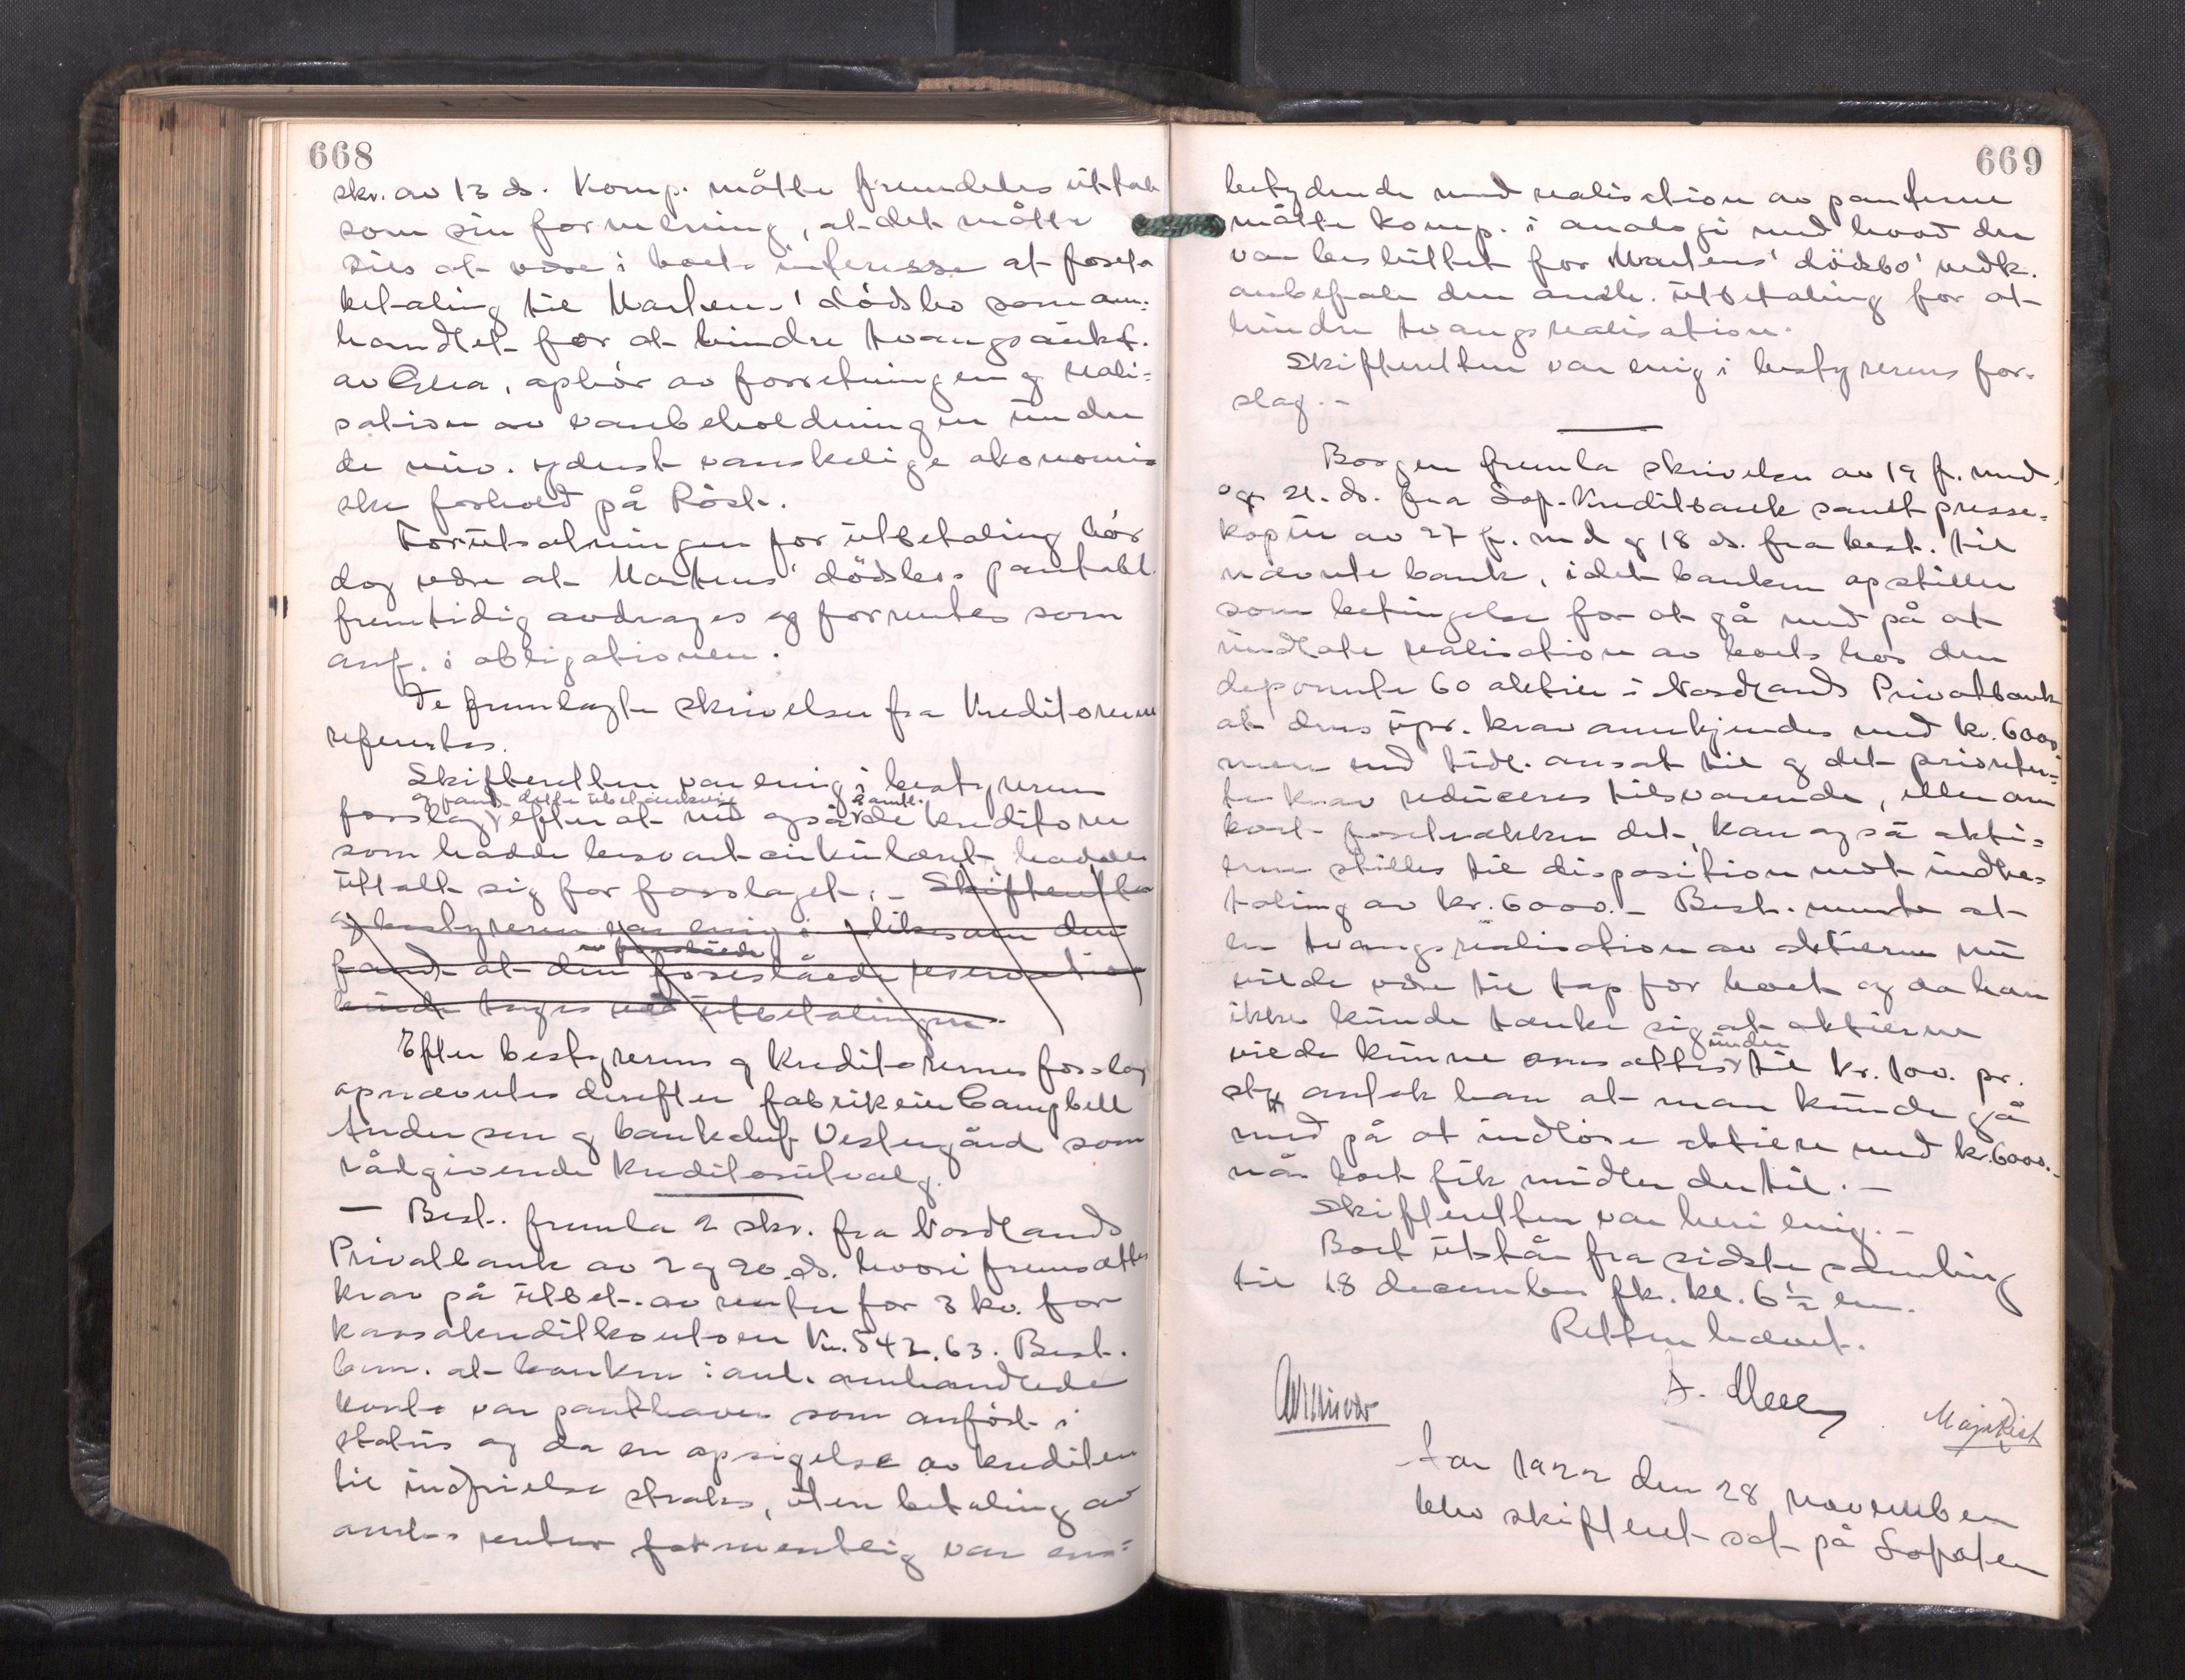 668
skr. av 13 ds. Komp. måtte fremdeles uttale
som sin formening, at det måtte
sies at være i boets interesse at foreta
betaling til Martens' dödsbo som om=
handlet for at hindre tvangsaukt.
av Glea, ophör av forretningen og reali=
sation av varebeholdningen under
de nuv. yderst vanskelige økonomi=
ske forhold på Röst.
Forutsætningen for utbetaling bör
dog være at Martens' dödsbos pantobl.
fremtidig avdrages og forrentes som
anf. i obligationen.
De fremlagte skrivelser fra Kreditorerne
refereertes.
Skifteretten var enig i bestyrerens
og fandt dette
forslag, efter at også de kreditorer
som hadde besvart cirkulæret hadde
uttalt sig for forslaget. - Skifteretten
og bestyreren var enig i likesom den
fandt at den foreslåede reservation
kunde tages ved utbetalingen.
Efter bestyrerens og Kreditorernes forslag
opnævntes derefter fabrikeier Campbell
Andersen og bankchef Vestergård som
rådgivende Kreditorutvalg.
— Best. fremla 2 skr. fra Nordlands
Privatbank av 2 og 20 ds. hvori fremsættes
krav på utbet. av renter for 3 kv. for
kassakreditkontoen Kr. 542.63. Best.
bem. at banken i anl. omhandlede
konto var panthaver som anfört i
status og da en opsigelse av krediten
til indfrielse straks, uten betaling av
andes renter formentlig var ens=
669
betydende med realisation av panterne
måtte komp. i analogi med hvad der
var besluttet for Martens' dödsbo' vedk.
anbefale den andr. utbetaling for at
hindre tvangsrealisation.
Skifteretten var enig i bestyrerens for=
slag. -
Borgen fremla skrivelse av 19 f. md.
og 21. ds. fra Lof. Kreditbank samt presse=
kopier av 27 f. md og 18 ds. fra best. til
nævnte bank, idet banken opstiller
som betingelse for at gå med på at
undlate realisation av boets hos den
deponerte 60 aktier i Nordlands Privatbank
at dens upr. krav anerkjendes med kr. 6000.
men end tidl. ansat til og det prioriter=
te krav reduceres tilsvarende, eller om
boet foretrækker det, kan også akti=
erne stilles til disposition mot indbe=
taling av kr. 6000. - Best. mente at
en tvangsrealisation av aktierne nu
vilde være til tap for boet og da han
ikke kunde tænke sig at aktierne
vilde kunne omsættes under til kr. 100. pr.
stk antok han at man kunde gå
med på at indlöse aktiene med kr. 6000.-
når boet fik midler dertil. -
Skifteretten var heri enig. -
Boet utstår fra sidste samling
til 18 december fk. kl. 6 ½ em.
Retten hævet.
Maja Rist
Aar 1922 den 28 november
blev skifteret sat på Lofoten